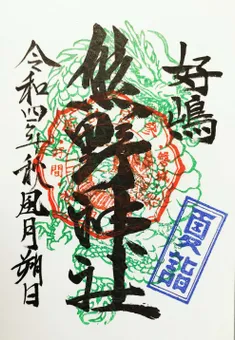 好嶋
熊野神社
令和四年秋風月朔日
夏詣